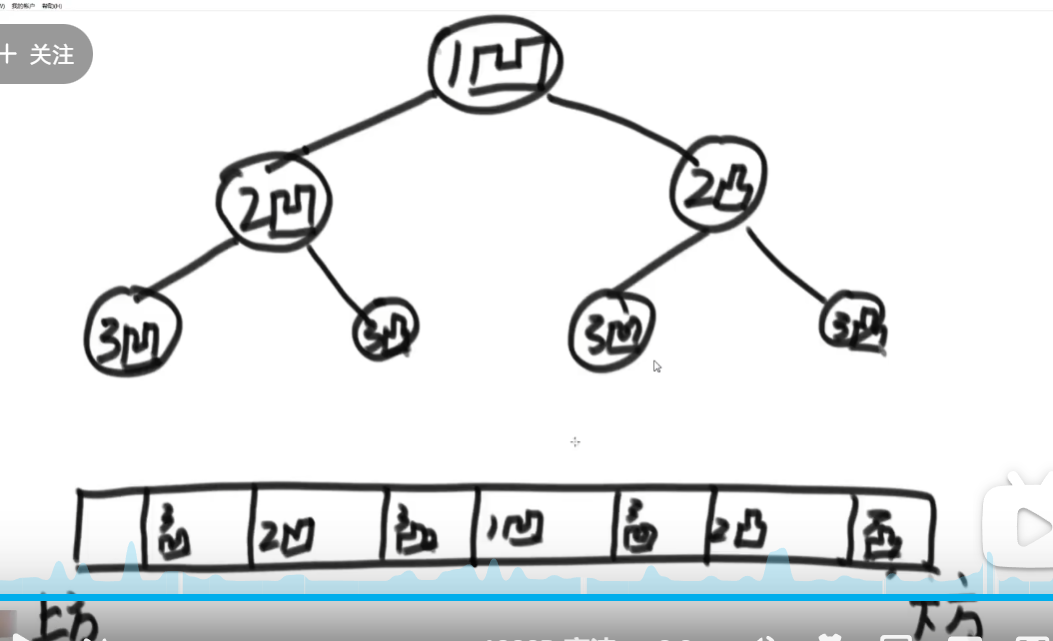 我的帐户 帮助(H)
关注
1凹
2凹 2凸
3凹 3凸 3凹 3凸
3凹 2凹 3凸 1凹 3凹 2凸 3凸
上方 下方